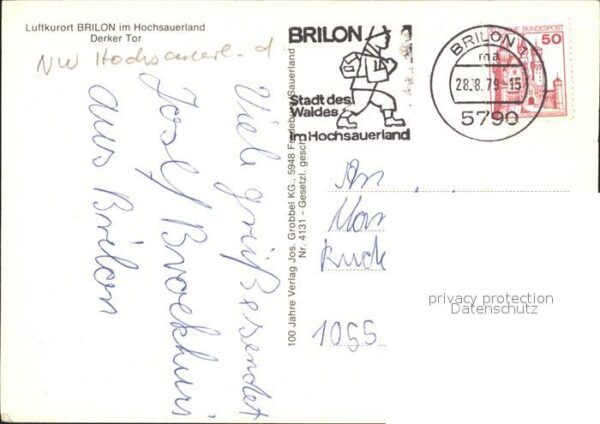 Luftkurort BRILON im Hochsauerland
Derker Tor
NW Hochsauerl. d
Viele grüße sendet
Josef Brockhuri
aus Brilon
100 Jahre Verlag Jos. Grobbel KG., 5948 Fredeburg/Sauerland
Nr. 4131 - Gesetzl. gesch.
BRILON
Stadt des
Waldes
im Hochsauerland
BRILON 7
ma
28.8.79-15
5790
DEUTSCHE BUNDESPOST
50
An
1055
privacy protection
Datenschutz